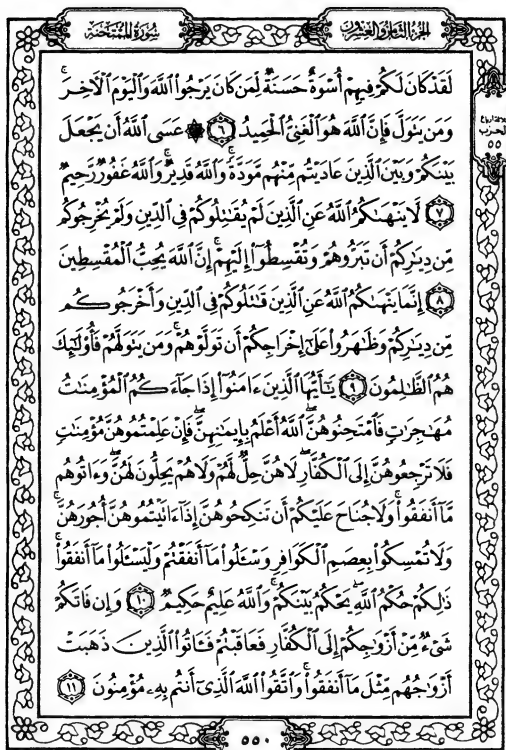 الجزء الثامن والعشرون
سورة الممتحنة
لَقَدْ كَانَ لَكُمْ فِيهِمْ أُسْوَةٌ حَسَنَةٌ لِّمَن كَانَ يَرْجُوا۟ ٱللَّهَ وَٱلْيَوْمَ ٱلْـَٔاخِرَ ۚ
وَمَن يَتَوَلَّ فَإِنَّ ٱللَّهَ هُوَ ٱلْغَنِىُّ ٱلْحَمِيدُ ٦ ۞ عَسَى ٱللَّهُ أَن يَجْعَلَ
بَيْنَكُمْ وَبَيْنَ ٱلَّذِينَ عَادَيْتُم مِّنْهُم مَّوَدَّةً ۚ وَٱللَّهُ قَدِيرٌ ۚ وَٱللَّهُ غَفُورٌ رَّحِيمٌ
٧ لَّا يَنْهَىٰكُمُ ٱللَّهُ عَنِ ٱلَّذِينَ لَمْ يُقَٰتِلُوكُمْ فِى ٱلدِّينِ وَلَمْ يُخْرِجُوكُم
مِّن دِيَٰرِكُمْ أَن تَبَرُّوهُمْ وَتُقْسِطُوٓا۟ إِلَيْهِمْ ۚ إِنَّ ٱللَّهَ يُحِبُّ ٱلْمُقْسِطِينَ
٨ إِنَّمَا يَنْهَىٰكُمُ ٱللَّهُ عَنِ ٱلَّذِينَ قَٰتَلُوكُمْ فِى ٱلدِّينِ وَأَخْرَجُوكُم
مِّن دِيَٰرِكُمْ وَظَٰهَرُوا۟ عَلَىٰٓ إِخْرَاجِكُمْ أَن تَوَلَّوْهُمْ ۚ وَمَن يَتَوَلَّهُمْ فَأُو۟لَٰٓئِكَ
هُمُ ٱلظَّٰلِمُونَ ٩ يَٰٓأَيُّهَا ٱلَّذِينَ ءَامَنُوٓا۟ إِذَا جَآءَكُمُ ٱلْمُؤْمِنَٰتُ
مُهَٰجِرَٰتٍ فَٱمْتَحِنُوهُنَّ ۖ ٱللَّهُ أَعْلَمُ بِإِيمَٰنِهِنَّ ۖ فَإِنْ عَلِمْتُمُوهُنَّ مُؤْمِنَٰتٍ
فَلَا تَرْجِعُوهُنَّ إِلَى ٱلْكُفَّارِ ۖ لَا هُنَّ حِلٌّ لَّهُمْ وَلَا هُمْ يَحِلُّونَ لَهُنَّ ۖ وَءَاتُوهُم
مَّآ أَنفَقُوا۟ ۚ وَلَا جُنَاحَ عَلَيْكُمْ أَن تَنكِحُوهُنَّ إِذَآ ءَاتَيْتُمُوهُنَّ أُجُورَهُنَّ ۚ
وَلَا تُمْسِكُوا۟ بِعِصَمِ ٱلْكَوَافِرِ وَسْـَٔلُوا۟ مَآ أَنفَقْتُمْ وَلْيَسْـَٔلُوا۟ مَآ أَنفَقُوا۟ ۚ
ذَٰلِكُمْ حُكْمُ ٱللَّهِ ۖ يَحْكُمُ بَيْنَكُمْ ۚ وَٱللَّهُ عَلِيمٌ حَكِيمٌ ١٠ وَإِن فَاتَكُمْ
شَىْءٌ مِّنْ أَزْوَٰجِكُمْ إِلَى ٱلْكُفَّارِ فَعَاقَبْتُمْ فَـَٔاتُوا۟ ٱلَّذِينَ ذَهَبَتْ
أَزْوَٰجُهُم مِّثْلَ مَآ أَنفَقُوا۟ ۚ وَٱتَّقُوا۟ ٱللَّهَ ٱلَّذِىٓ أَنتُم بِهِۦ مُؤْمِنُونَ ١١
الحزب
٥٥
٥٥٠